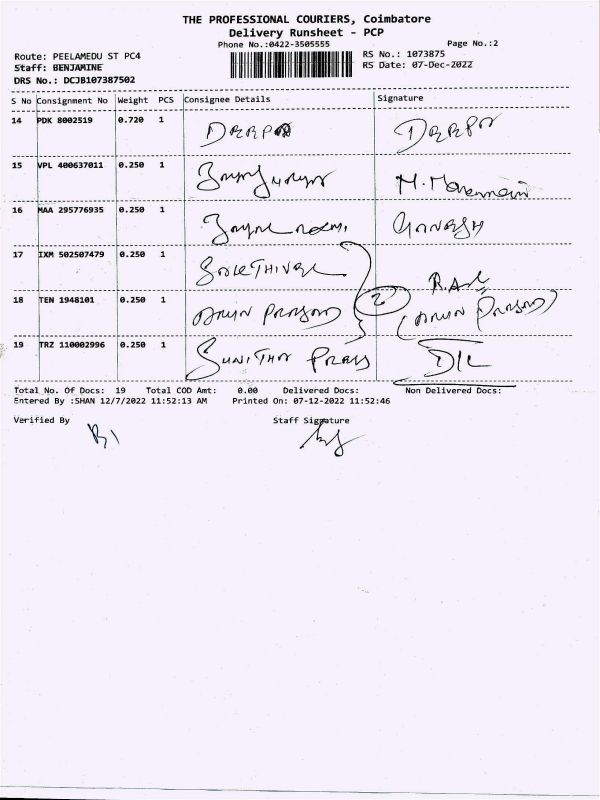 THE PROFESSIONAL COURIERS, Coimbatore
Delivery Runsheet - PCP
Phone No.:0422-3505555 Page No.:2
Route: PEELAMEDU ST PC4 RS No.: 1073875
Staff: BENJAMINE RS Date: 07-Dec-2022
DRS No.: DCJB107387502
S No Consignment No Weight PCS Consignee Details Signature
14 PDK 8002519 0.720 1
15 VPL 400637011 0.250 1
16 MAA 295776935 0.250 1 GANESH
17 IXM 502507479 0.250 1
18 TEN 1948101 0.250 1 ARUN PRASAD 2 (ARUN PRASAD)
19 TRZ 110002996 0.250 1 SUNITHA
Total No. Of Docs: 19 Total COD Amt: 0.00 Delivered Docs: Non Delivered Docs:
Entered By :SHAN 12/7/2022 11:52:13 AM Printed On: 07-12-2022 11:52:46
Verified By Staff Signature